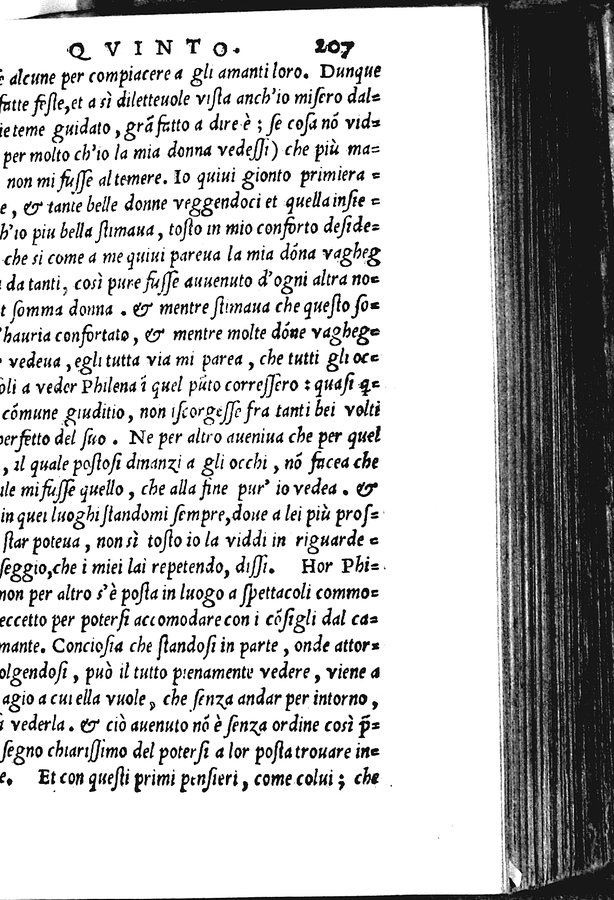 QVINTO. 207
alcune per compiacere a gli amanti loro. Dunque
fatte feſte, et a sì diletteuole viſta anch'io miſero dal=
ie teme guidato, grã fatto a dire è; ſe coſa nó vid=
per molto ch'io la mia donna vedeſſi) che più ma=
non mi fuſſe al temere. Io quiui gionto primiera =
e, & tante belle donne veggendoci et quella inſie =
h'io piu bella ſtimaua, toſto in mio conforto deſide=
che si come a me quiui pareua la mia dóna vagheg
da tanti, così pure fuſſe auuenuto d'ogni altra no=
t ſomma donna. & mentre ſtimaua che queſto ſo=
'hauria confortato, & mentre molte dóne vagheg=
vedeua, egli tutta via mi parea, che tutti gli oc=
oli a veder Philena ĩ quel pũto correſſero: quaſi q=
cómune giuditio, non iſcorgeſſe fra tanti bei volti
perfetto del ſuo. Ne per altro aueniua che per quel
, il quale poſtoſi dinanzi a gli occhi, nó facea che
ale mi fuſſe quello, che alla fine pur' io vedea. &
in quei luoghi ſtandomi ſempre, doue a lei più proſ=
ſtar poteua, non sì toſto io la viddi in riguarde =
ſeggio, che i miei lai repetendo, diſſi. Hor Phi=
non per altro s'è poſta in luogo a ſpettacoli commo=
eccetto per poterſi accomodare con i cóſigli dal ca=
mante. Concioſia che ſtandoſi in parte, onde attor=
olgendoſi, può il tutto pienamente vedere, viene a
agio a cui ella vuole, che ſenza andar per intorno,
vederla. & ciò auenuto nó è ſenza ordine così p̃=
ſegno chiariſſimo del poterſi a lor poſta trouare in=
e. Et con queſti primi penſieri, come colui; che